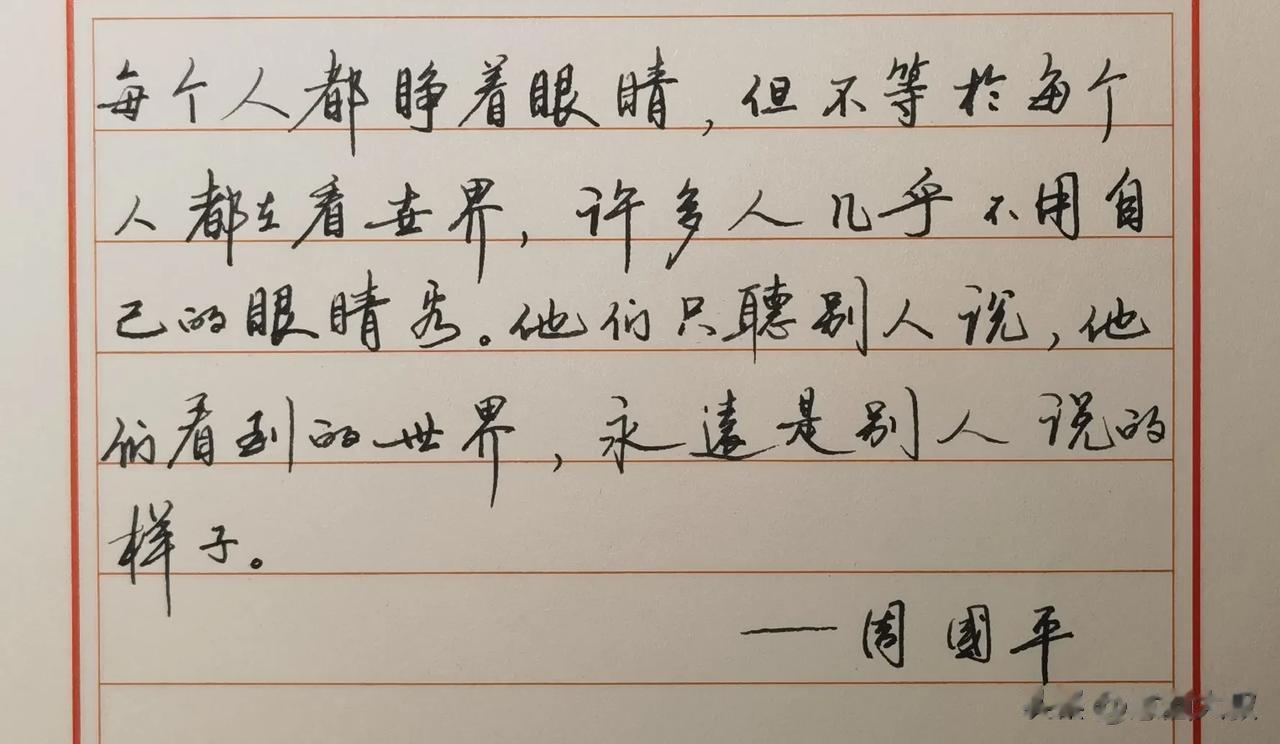 每个人都睁着眼睛，但不等於每个
人都在看世界，许多人几乎不用自
己的眼睛看。他们只聽别人说，他
们看到的世界，永遠是别人说的
样子。
——周國平